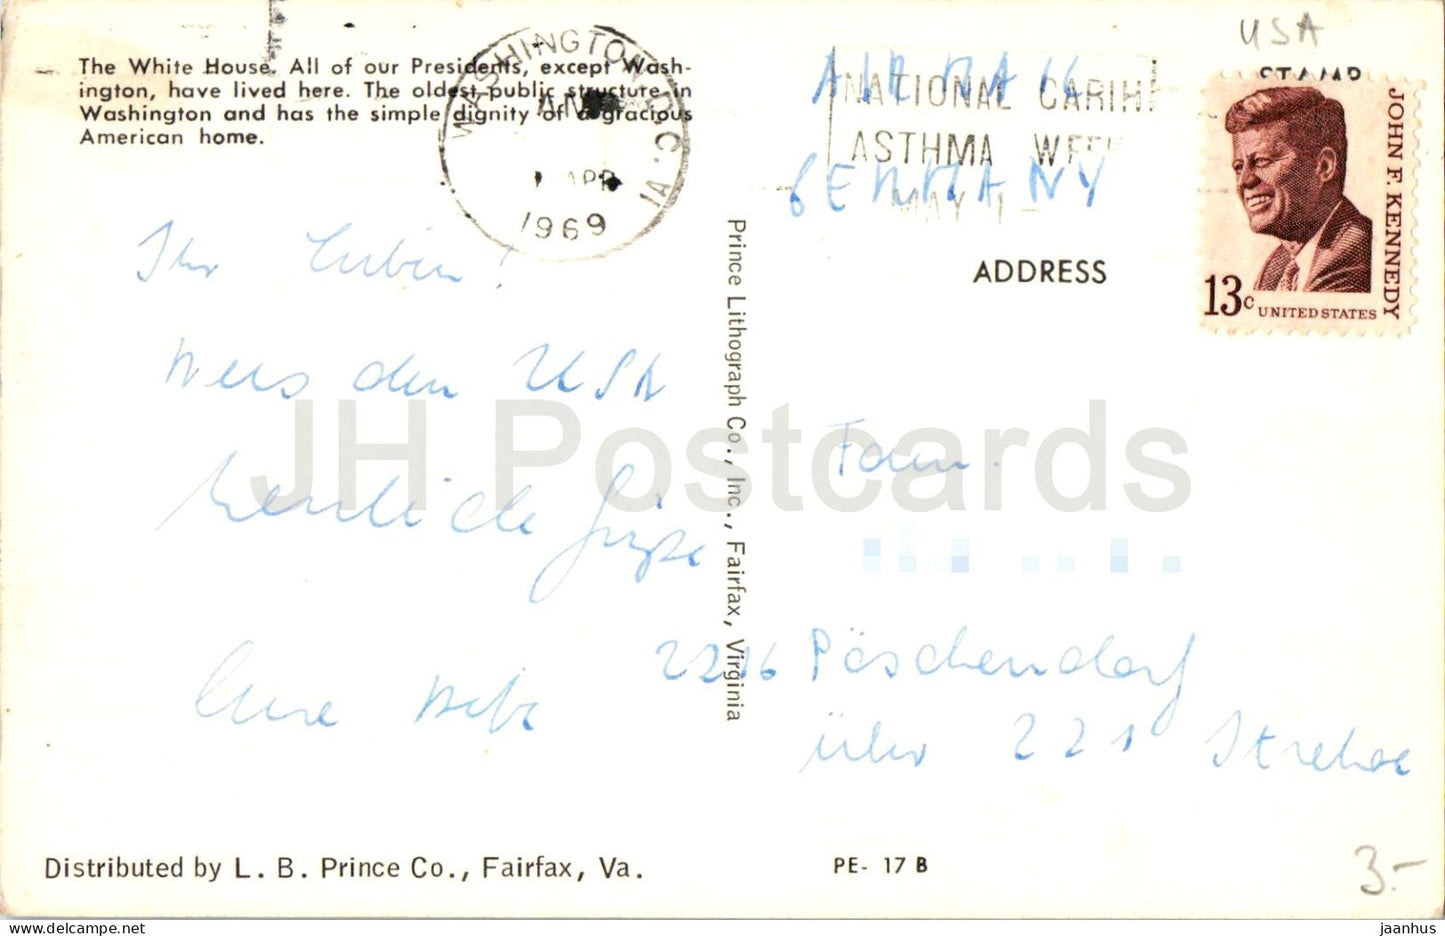 USA
The White House. All of our Presidents, except Wash-
ington, have lived here. The oldest public structure in
Washington and has the simple dignity of a gracious
American home.
WASHINGTON, D.C.
APR
1969
AIR MAIL
NATIONAL CARIH
ASTHMA WEEK
GERMANY
MAY 1-
STAMP
JOHN F. KENNEDY
13c
UNITED STATES
ADDRESS
Ihr Lieben!
den USA
herzliche Grüße
Eure
Prince Lithograph Co., Inc., Fairfax, Virginia
Fam.
2216 Pöschendorf
über 221 Itzehoe
JH Postcards
Distributed by L. B. Prince Co., Fairfax, Va.
PE- 17 B
3.-
jaanhus
www.delcampe.net